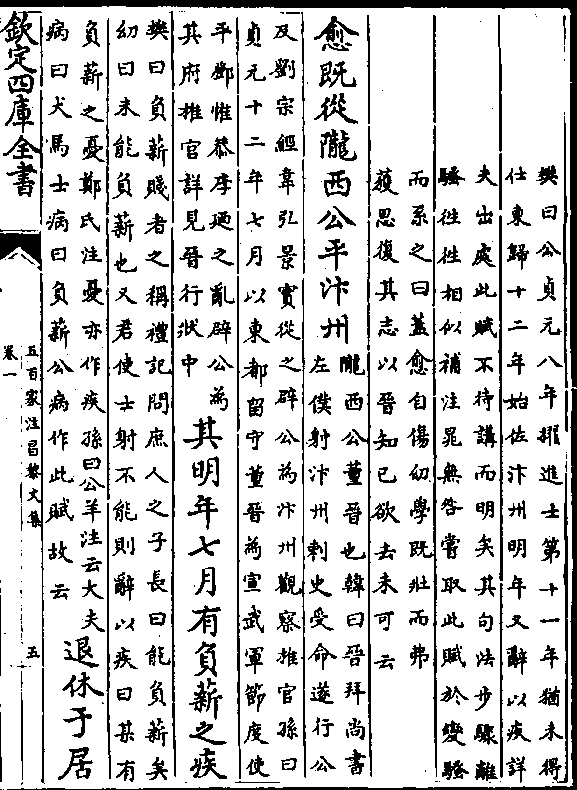 樊曰公貞元八年擢進士第十一年猶未得
仕東歸十二年始佐汴州明年又辭以疾詳
夫出處此賦不待講而明矣其句法步驟離
騷徃徃相似補注晁無咎嘗取此賦於變騷
而系之曰蓋愈自傷幼學既壯而弗
獲思復其志以晉知已欲去未可云
愈既從隴西公平汴州
隴西公董晉也韓曰晉拜尚書
左僕射汴州刺史受命遂行公
及劉宗經韋弘景實從之辟公為汴州觀察推官孫曰
貞元十二年七月以東都留守董晉為宣武軍節度使
平鄧惟恭李迺之亂辟公為
其府推官詳見晉行狀中
其明年七月有負薪之疾
樊曰負薪賤者之稱禮記問庶人之子長曰能負薪矣
幼曰未能負薪也又君使士射不能則辭以疾曰某有
負薪之憂鄭氏注憂亦作疾孫曰公羊注云大夫
病曰犬馬士病曰負薪公病作此賦故云
退休于居
欽定四庫全書
五百家注昌黎文集
卷一
五